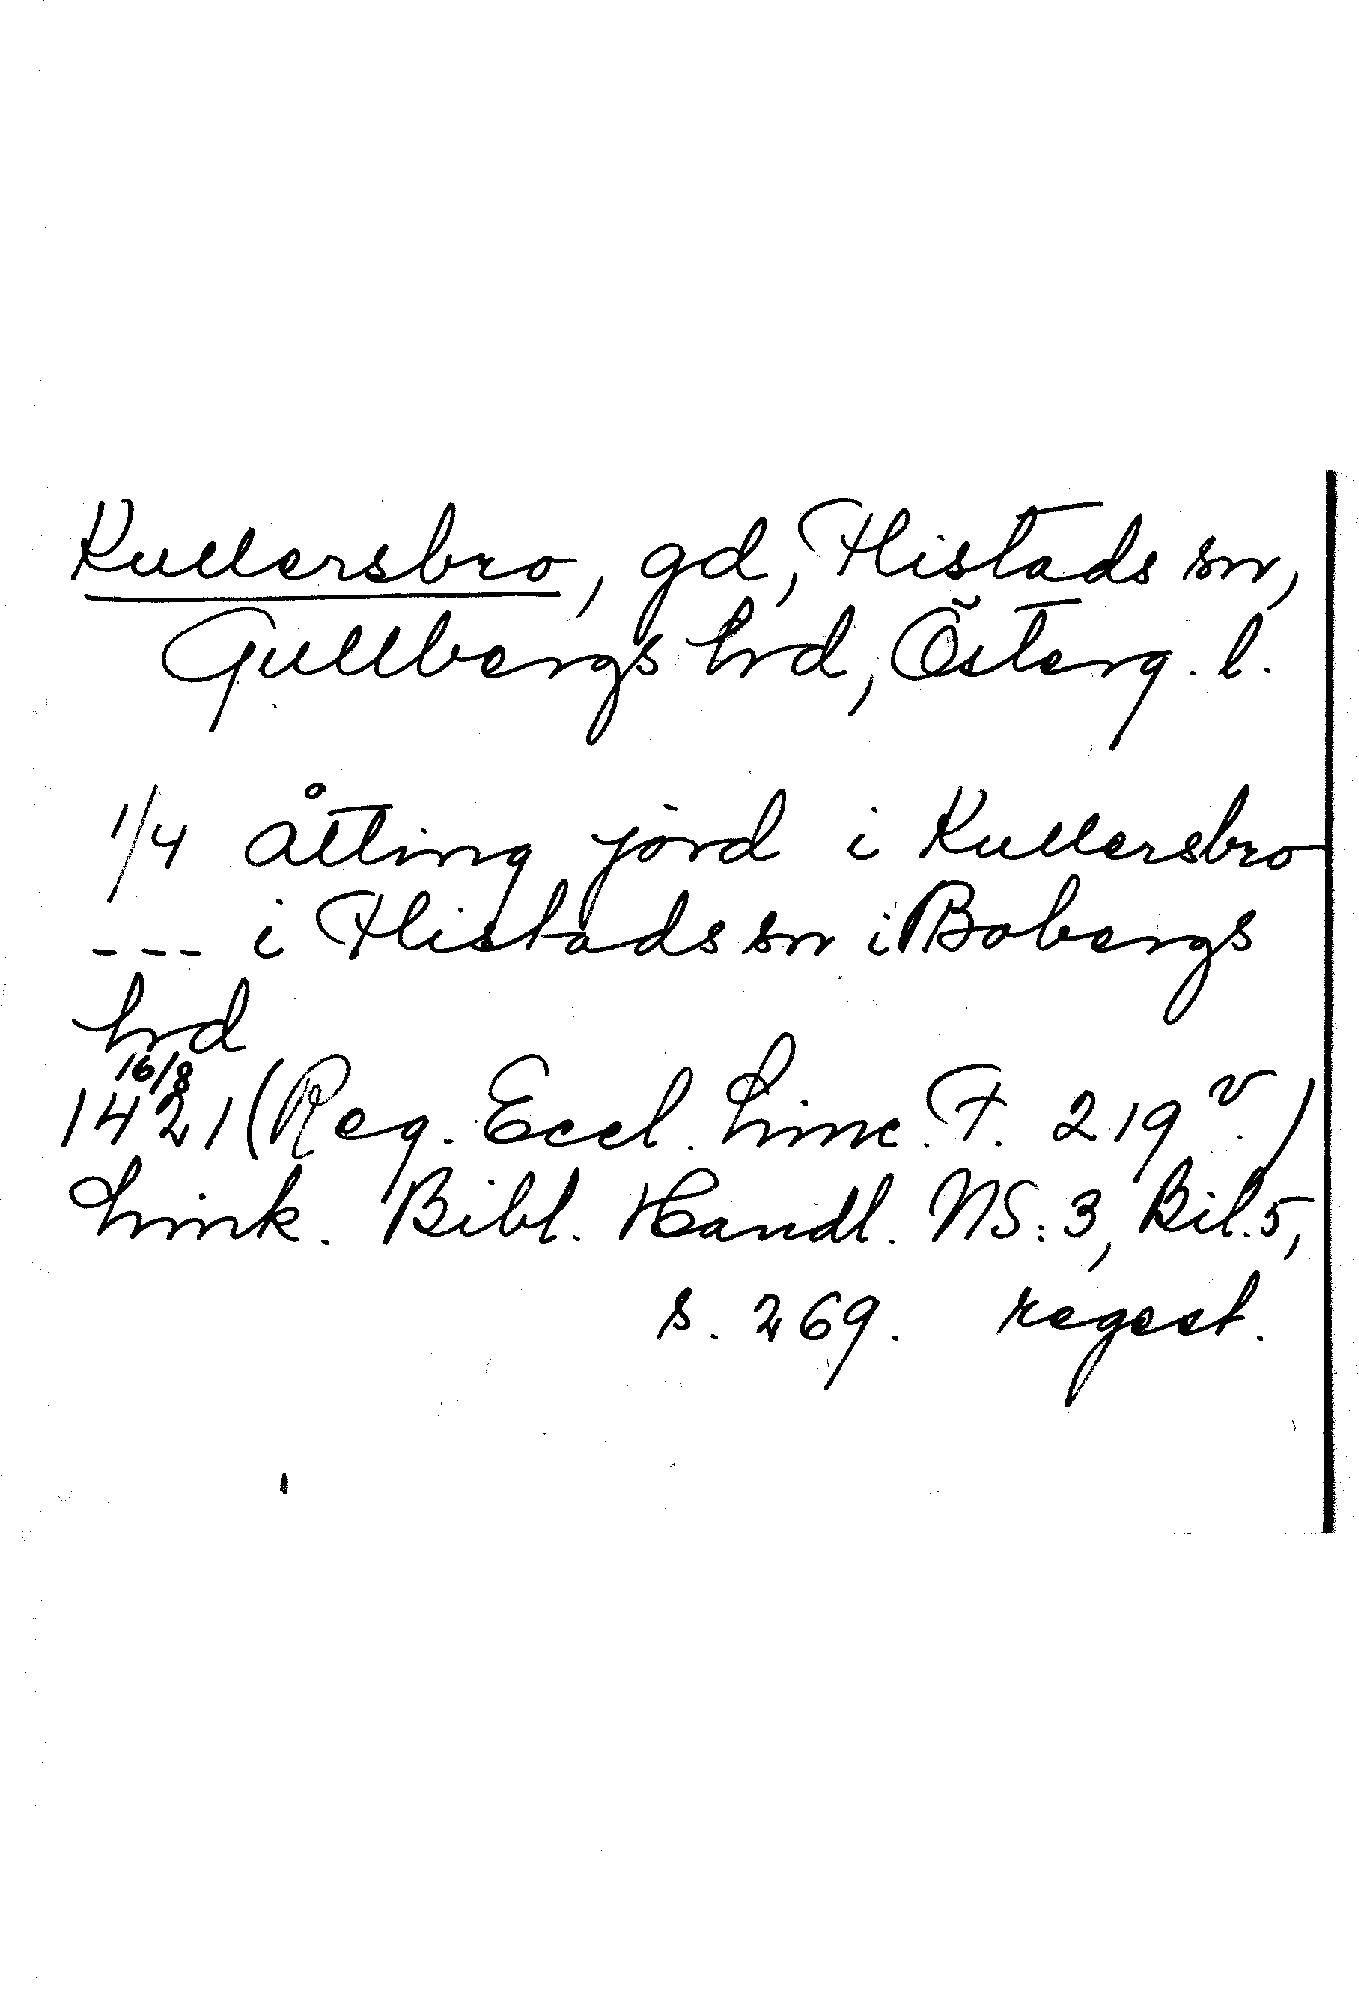 Kullersbro, gd, Flistads sn,
Gullbergs hrd, Österg. l.
1/4 åtting jord i Kullersbro
--- i Flistads sn i Bobergs
hrd
16/8
1421 (Reg. Eccl. Linc. F. 219 v.)
Link. Bibl. Handl. NS:3, Bil.5,
s. 269. regest.